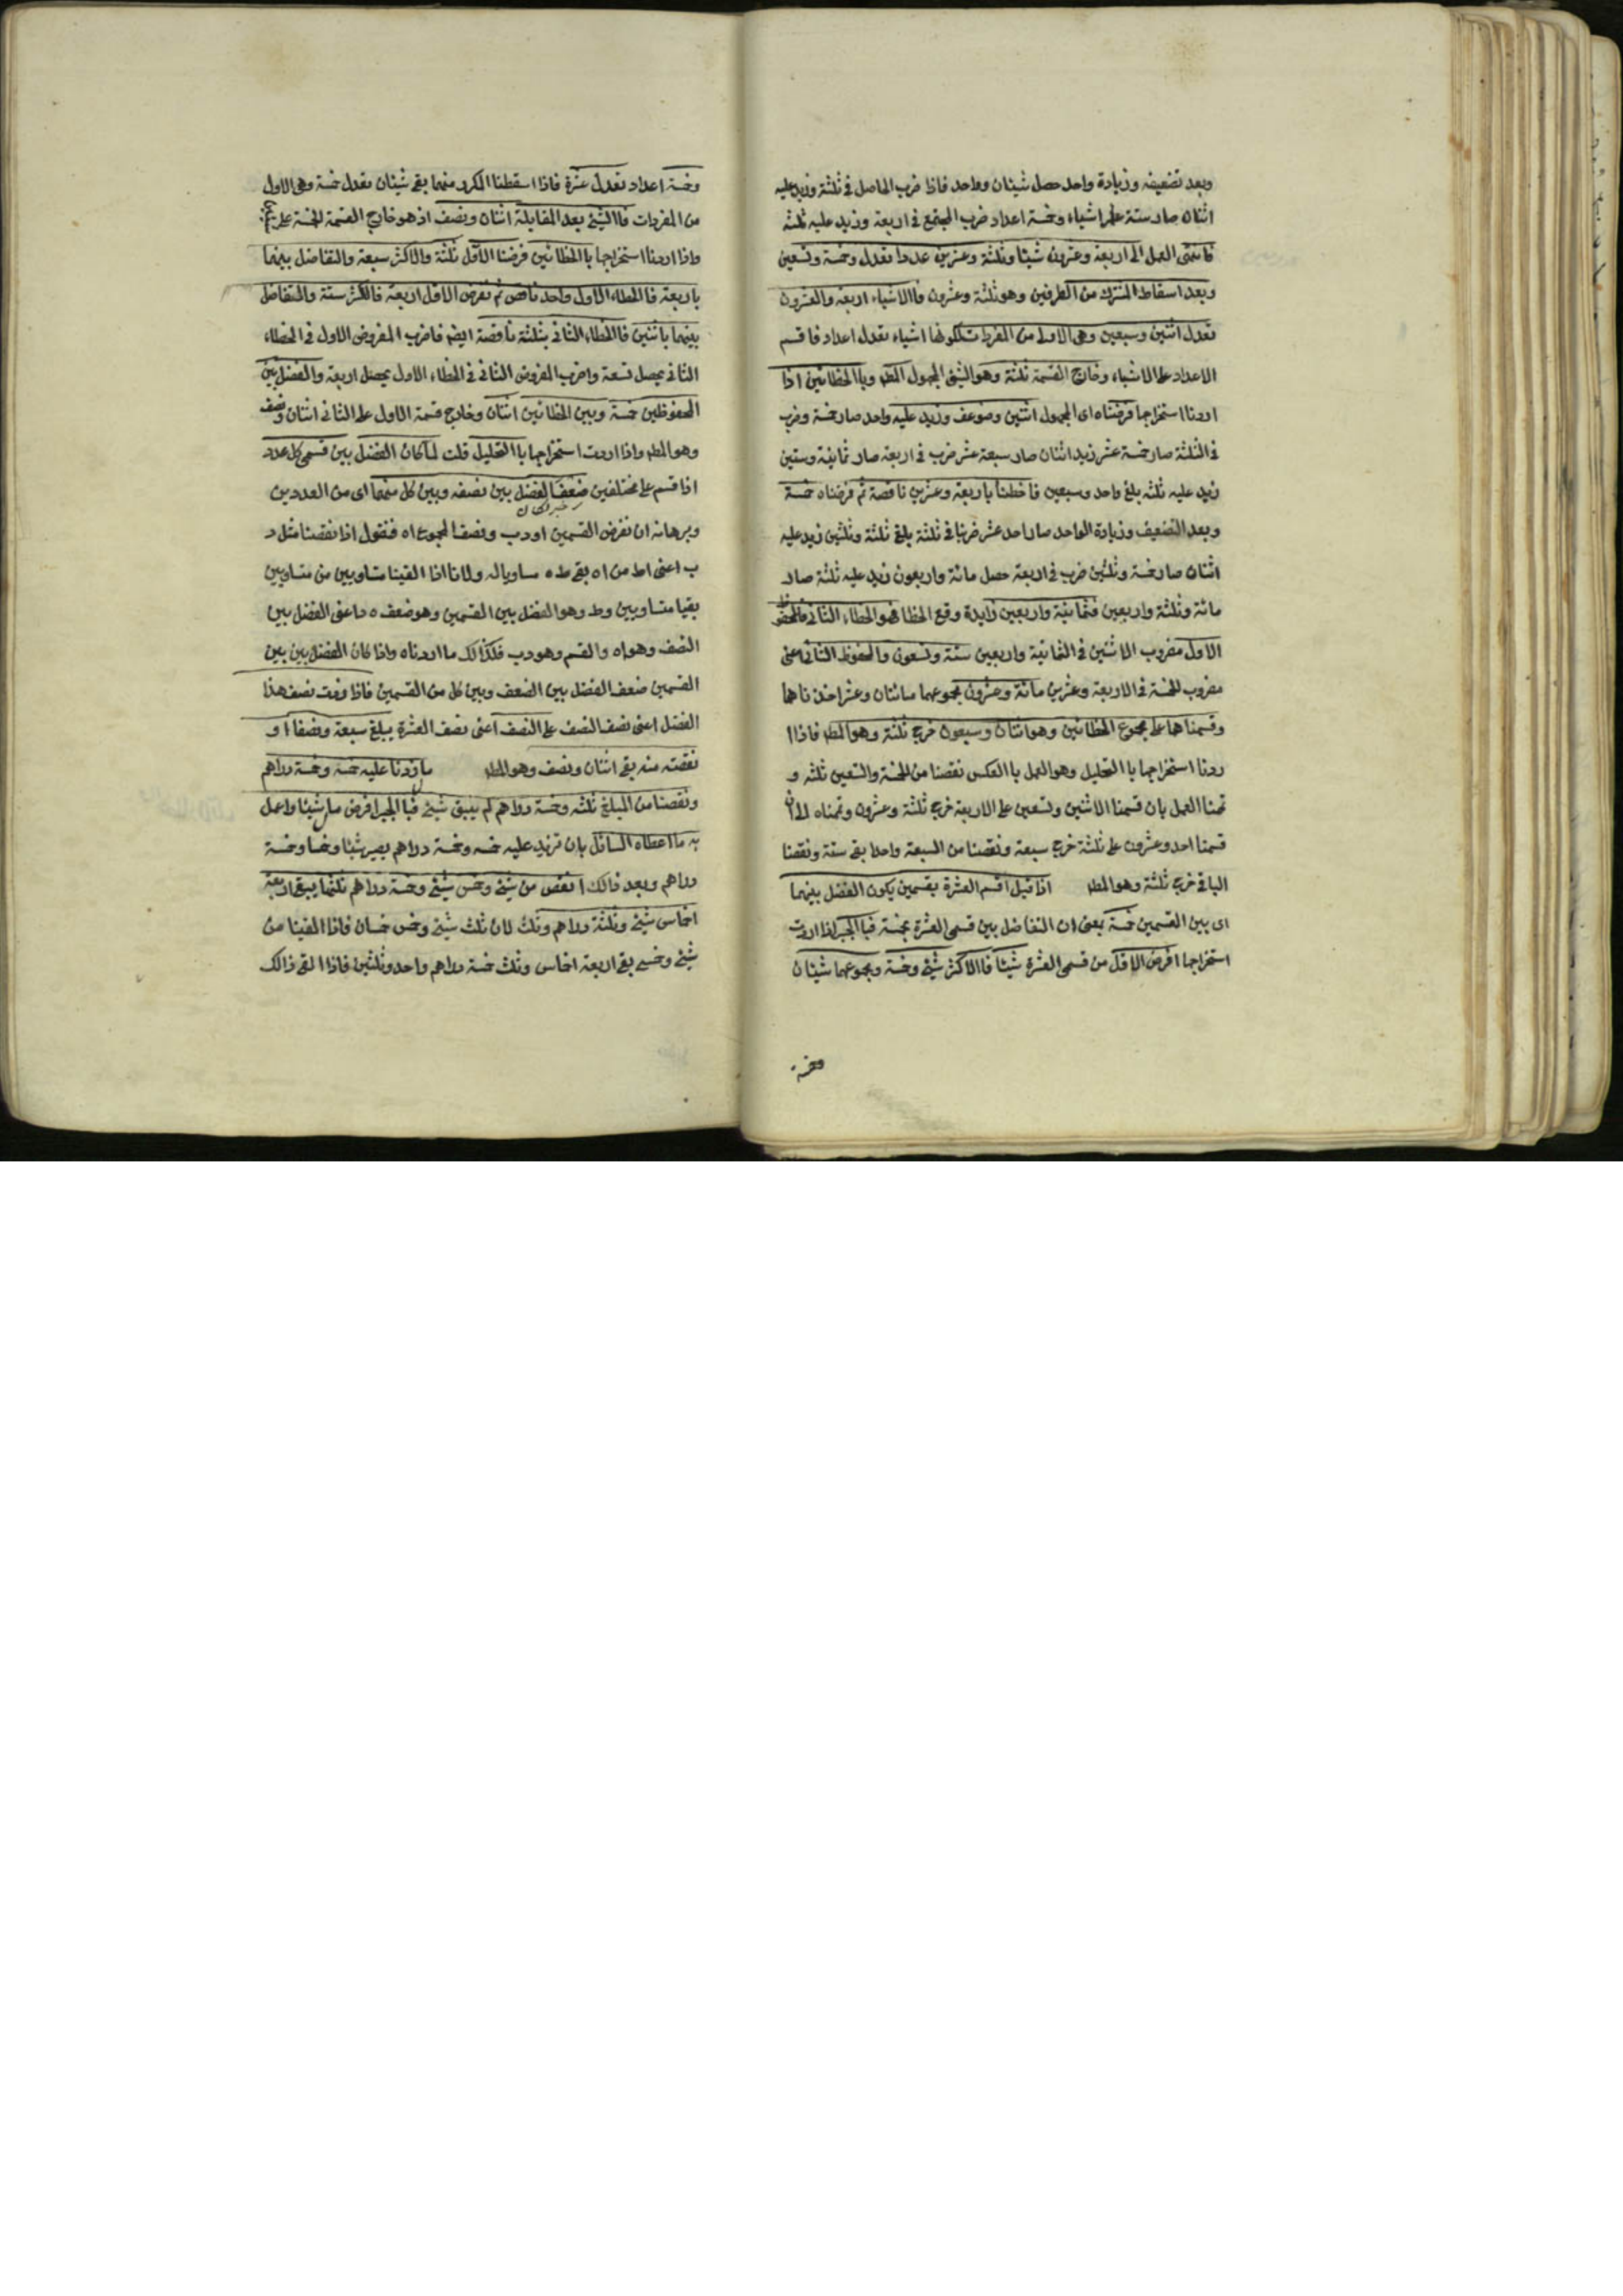 وبعد تضعيفه وزيادة واحد حصل شيئان وواحد فاذا ضرب الحاصل فى ثلثة وزيد عليه
اثنان صار ستة اشياء وخمسة اعداد ضرب المجتمع فى اربعة وزيد عليه ثلثه
فانتهى العمل الى اربعة وعشرون شيئا وثلثة وعشرين عددا تعدل وخمسة وتسعين
وبعد اسقاط المشترك من الطرفين وهو ثلثة وعشرون فاالاشياء اربعة والعشرون
تعدل اثنين وسبعين وهى الاولى من المفردات لكونها اشياء تعدل اعداد فاقسم
الاعداد على الاشياء وخارج القسمة ثلثة وهو الشئ المجهول المط وباالخطائين اذا
اردنا استخراجها فرضناه اى المجهول اثنين وضوعف وزيد عليه واحد صار خمسة وضرب
فى الثلثة صار خمسة عشر زيد اثنان صار سبعة عشر ضرب فى اربعة صار ثمانية وستين
زيد عليه ثلثه بلغ واحد وسبعين فاخطئنا باربعة وعشرين ناقصة ثم فرضناه خمسة
وبعد التضعيف وزيادة الواحد صار احد عشر ضربنا فى ثلثة بلغ ثلثة وثلثين زيد عليه
اثنان صار خمسة وثلثين ضرب فى اربعة حصل مائة واربعون زيد عليه ثلثة صار
مائة وثلثة واربعين فثمانية واربعين زايدة وقع الخطا فهو الخطاء الثانى فالمحفوظ
الاول مضروب الاثنين فى الثمانية واربعين ستة وتسعون والمحفوظ الثانى اعنى
مضروب الخمسة فى الاربعة وعشرين مائة وعشرون مجموعهما مائتان وعشر اخذناهما
وقسمناهما على مجموع الخطائين وهو اثنان وسبعون خرج ثلثة وهو المط فاذا ا
ردنا استخراجها باالتحليل وهو العمل باالعكس نقصنا من الخمسة والتسعين ثلثه و
تممنا العمل بان قسمنا الاثنين وتسعين على الاربعة خرج ثلثة وعشرون وتممناه الى ان
قسمنا احد وعشرون على ثلثة خرج سبعة ونقصنا من السبعة واحدا بقى ستة ونصفنا
الباقى خرج ثلثة وهو المط اذا قيل اقسم العشرة بقسمين يكون الفضل بينهما
اى بين القسمين خمسة بمعنى ان التفاضل بين قسمى العشرة بخمسة فباالجبر اذا اردت
استخراجها افرض الاقل من قسمى العشرة شيئا فاالاكثر شيئ وخمسة ومجموعهما شيئان
وخمسة
وخمسة اعداد تعدل عشرة فاذا اسقطنا المكرر منهما بقى شيئان تعدل خمسة وهى الاول
من المفردات فاالشيئ بعد المقابلة اثنان ونصف اذ هو خارج القسمة الخمسة على
واذا اردنا استخراجها باالخطائين فرضنا الاقل ثلثة والاكثر سبعة والتفاضل بينهما
باربعة فاالخطاء الاول واحد ناقص ثم نفرض الاقل اربعة فالاكثر ستة والتفاضل
بينهما باثنين فاالخطاء الثانى بثلثة ناقصة ايضم فاضرب المفروض الاول فى الخطاء
الثانى يحصل تسعة واضرب المفروض الثانى فى الخطاء الاول يحصل اربعة والفضل بين
المحفوظين خمسة وبين الخطائين اثنان وخارج قسمة الاول على الثانى اثنان ونصف
وهو المط واذا اردت استخراجها باالتحليل قلت لما كان الفضل بين قسمى كل عدد
اذا قسم على مختلفين ضعف الفضل بين نصفه وبين كل منهما اى من العددين
خبر لكان
وبرهانه ان نفرض القسمين اد دب ونصف المجموع اه فنقول اذا نقصنا مثل د
ب اعنى اط من اه بقى طه مساويا له ولانا اذا القينا متساويين من متساويين
بقيا متساويين وط وهو الفضل بين القسمين وهو ضعف ه د اعنى الفضل بين
النصف وهو اه والقسم وهو دب فلذالك ما اردناه واذا كان الفضل بين بين
القسمين ضعف الفضل بين الضعف وبين كل من القسمين فاذا زدت نصف هذا
الفضل اعنى نصف النصف على النصف اعنى نصف العشرة يبلغ سبعة ونصفا او
نقصته منه بقى اثنان ونصف وهو المط مال زدنا عليه خمسه وخمسة دراهم
ونقصنا من المبلغ ثلثه وخمسة دراهم لم يبق شيئ فباالجبر افرض مال شيئا واعمل
به ما اعطاه السائل بان تزيد عليه خمسه وخمسة دراهم يصير شيئا وخمسا وخمسة
دراهم وبعد ذالك انقص من شيئ وخمس شيئ وخمسة دراهم ثلثها يبقى اربعة
اخماس شيئ وثلثة دراهم وثلث لان ثلث شيئ وخمس خمسان فاذا القينا من
شيئ وخمس بقى اربعة اخماس وثلث خمسة دراهم واحد وثلثين فاذا القى ذالك